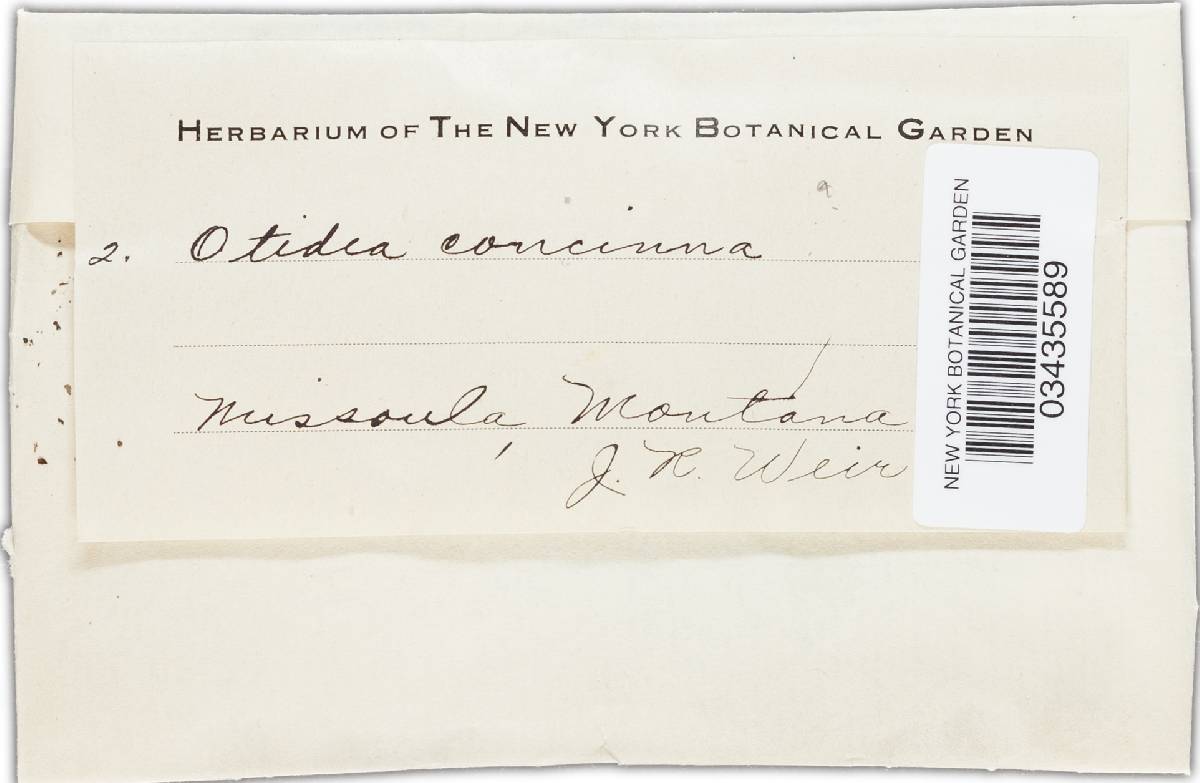 HERBARIUM OF THE NEW YORK BOTANICAL GARDEN
2. Otidea concinna
Missoula, Montana
J. R. Weir
NEW YORK BOTANICAL GARDEN
03435589